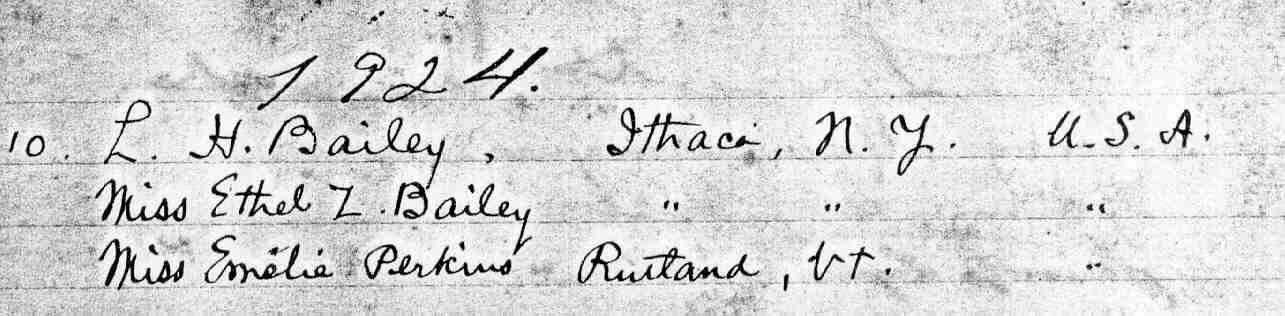 1924.
10. L. H. Bailey, Ithaca, N. Y. U. S. A.
Miss Ethel Z. Bailey " " "
Miss Emélie Perkins Rutland, Vt. "